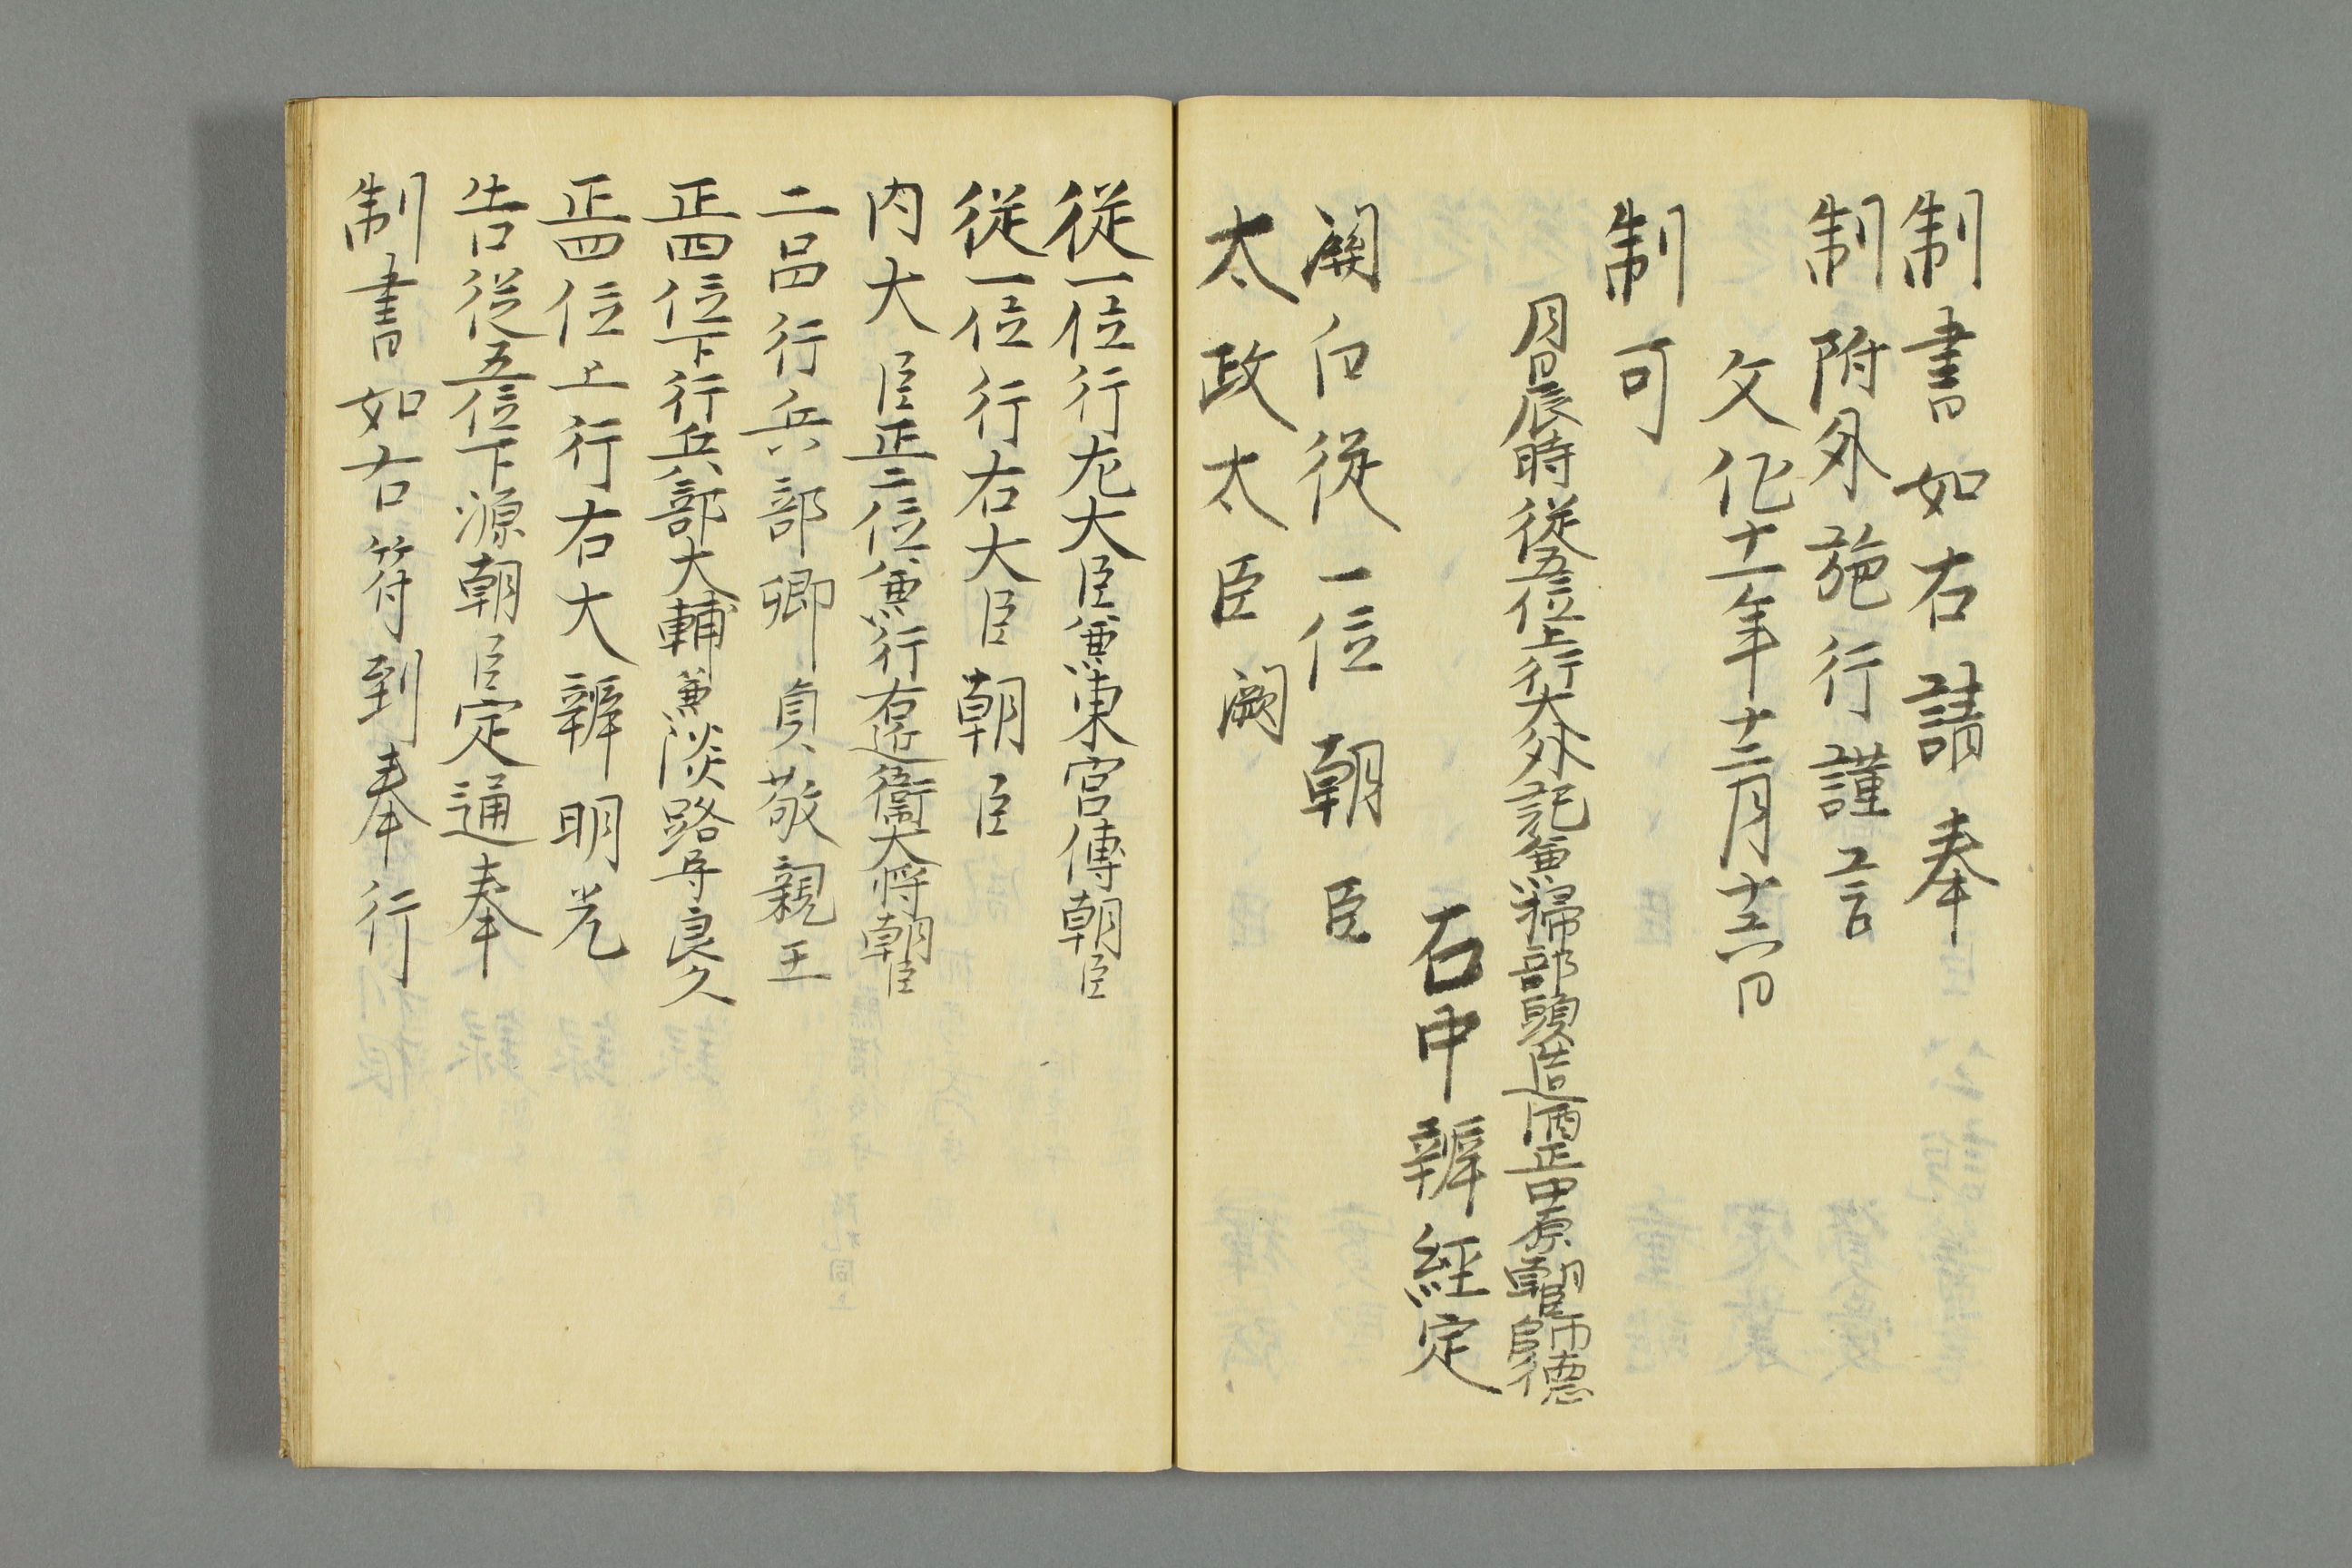 制書如右請奉
制附外施行謹言
文化十一年十二月十六日
制可
月日辰時従五位上行大外記兼掃部頭造酒正中原朝臣師徳
右中辨経定
関白従一位朝臣
太政大臣闕
従一位行左大臣兼東宮傅朝臣
従一位行右大臣朝臣
内大臣正二位兼行右近衛大将朝臣
二品行兵部卿貞敬親王
正四位下行兵部大輔兼淡路守良久
正四位上行右大辨明光
告従五位下源朝臣定通奉
制書如右符到奉行